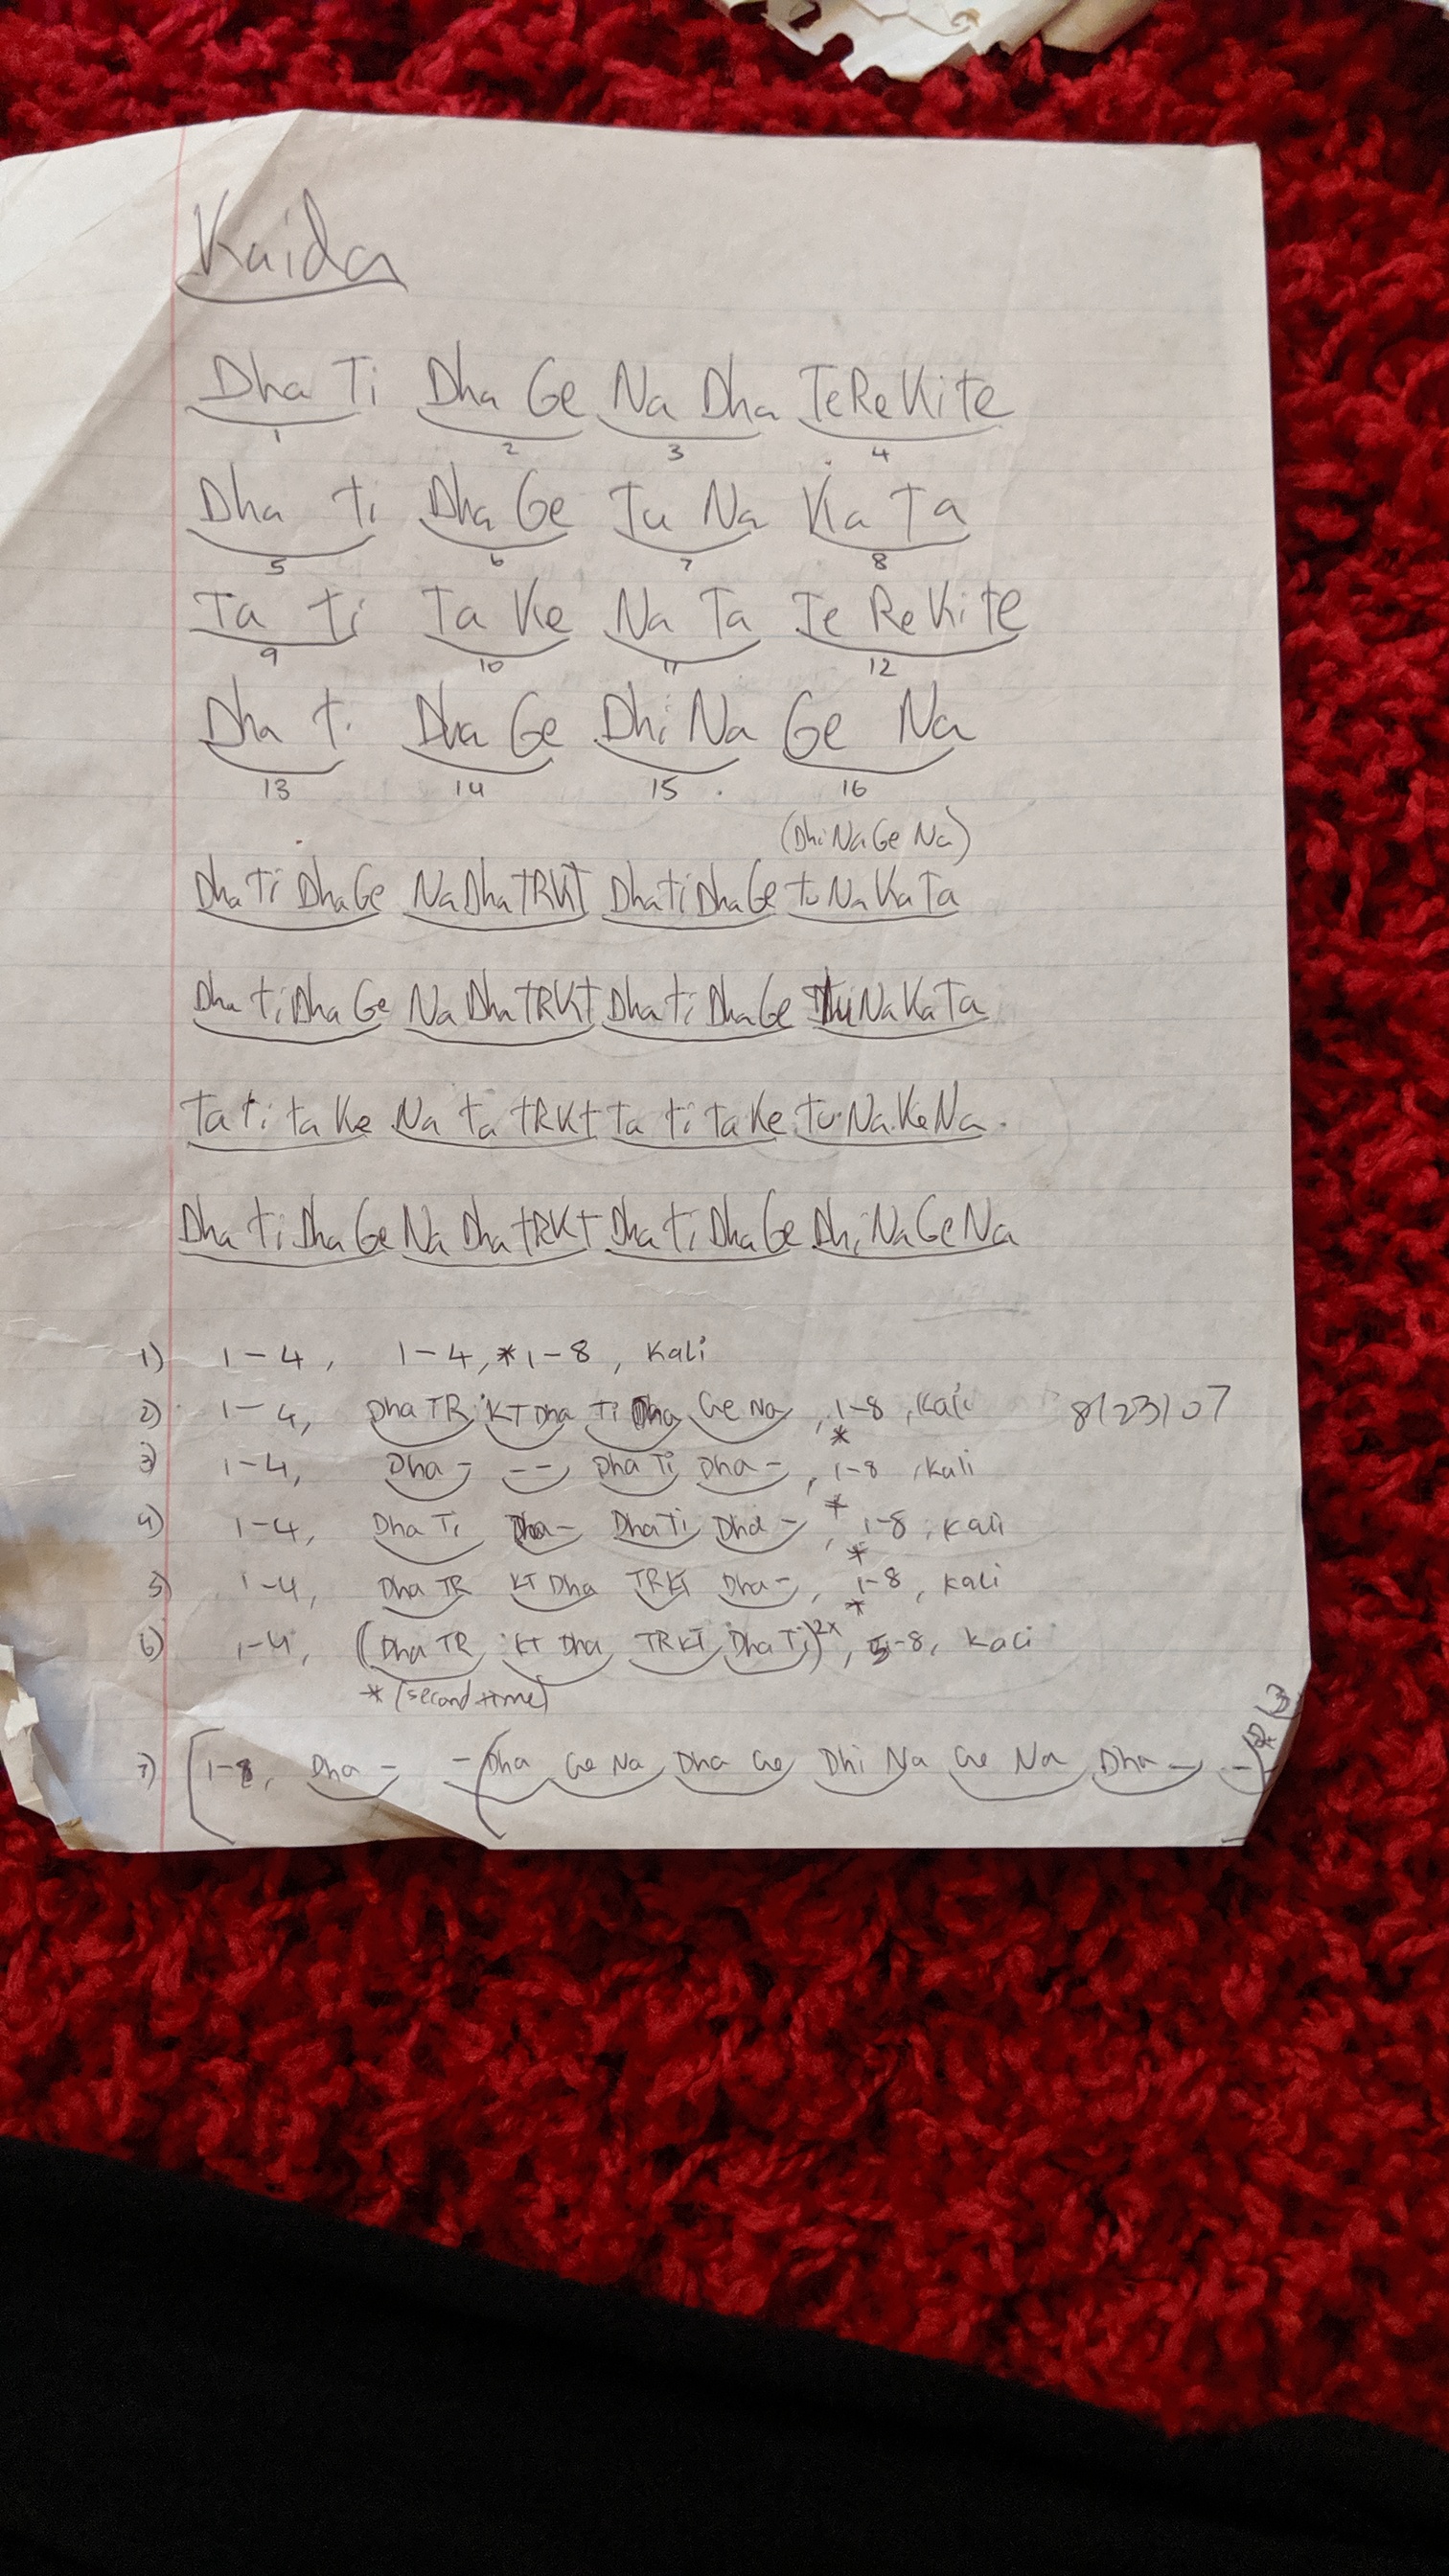 Kaida
Dha Ti Dha Ge Na Dha TeReKite
1 2 3 4
Dha ti Dha Ge Tu Na Ka Ta
5 6 7 8
Ta ti Ta Ke Na Ta Te ReKite
9 10 11 12
Dha ti Dha Ge Dhi Na Ge Na
13 14 15 16
(DhiNaGe Na)
Dha Ti DhaGe NaDhaTRKT DhatiDhaGe tuNaKaTa
Dha ti DhaGe Na Dha TRKT Dha ti DhaGe NaKaTa
Ta ti ta Ke Na ta TRKT ta ti taKe tu Na KeNa
Dha ti DhaGe Na DhaTRKT Dha ti DhaGe DhiNaGeNa
1) 1-4, 1-4, *1-8, Kali
2) 1-4, Dha TR KT Dha Ti Dha Ge Na, 1-8, Kali 8/23/07
*
3) 1-4, Dha - - - Dha Ti Dha -, 1-8, Kali
*
4) 1-4, Dha Ti Dha - Dha Ti Dha -, 1-8, Kali
*
5) 1-4, Dha TR KT Dha TRKT Dha -, 1-8, Kali
*
6) 1-4, (Dha TR KT Dha TRKT Dha Ti)2x, 5-8, Kali
* (second time)
7) [1-8, Dha - - (Dha Ge Na Dha Ge Dhi Na Ge Na Dha - -)